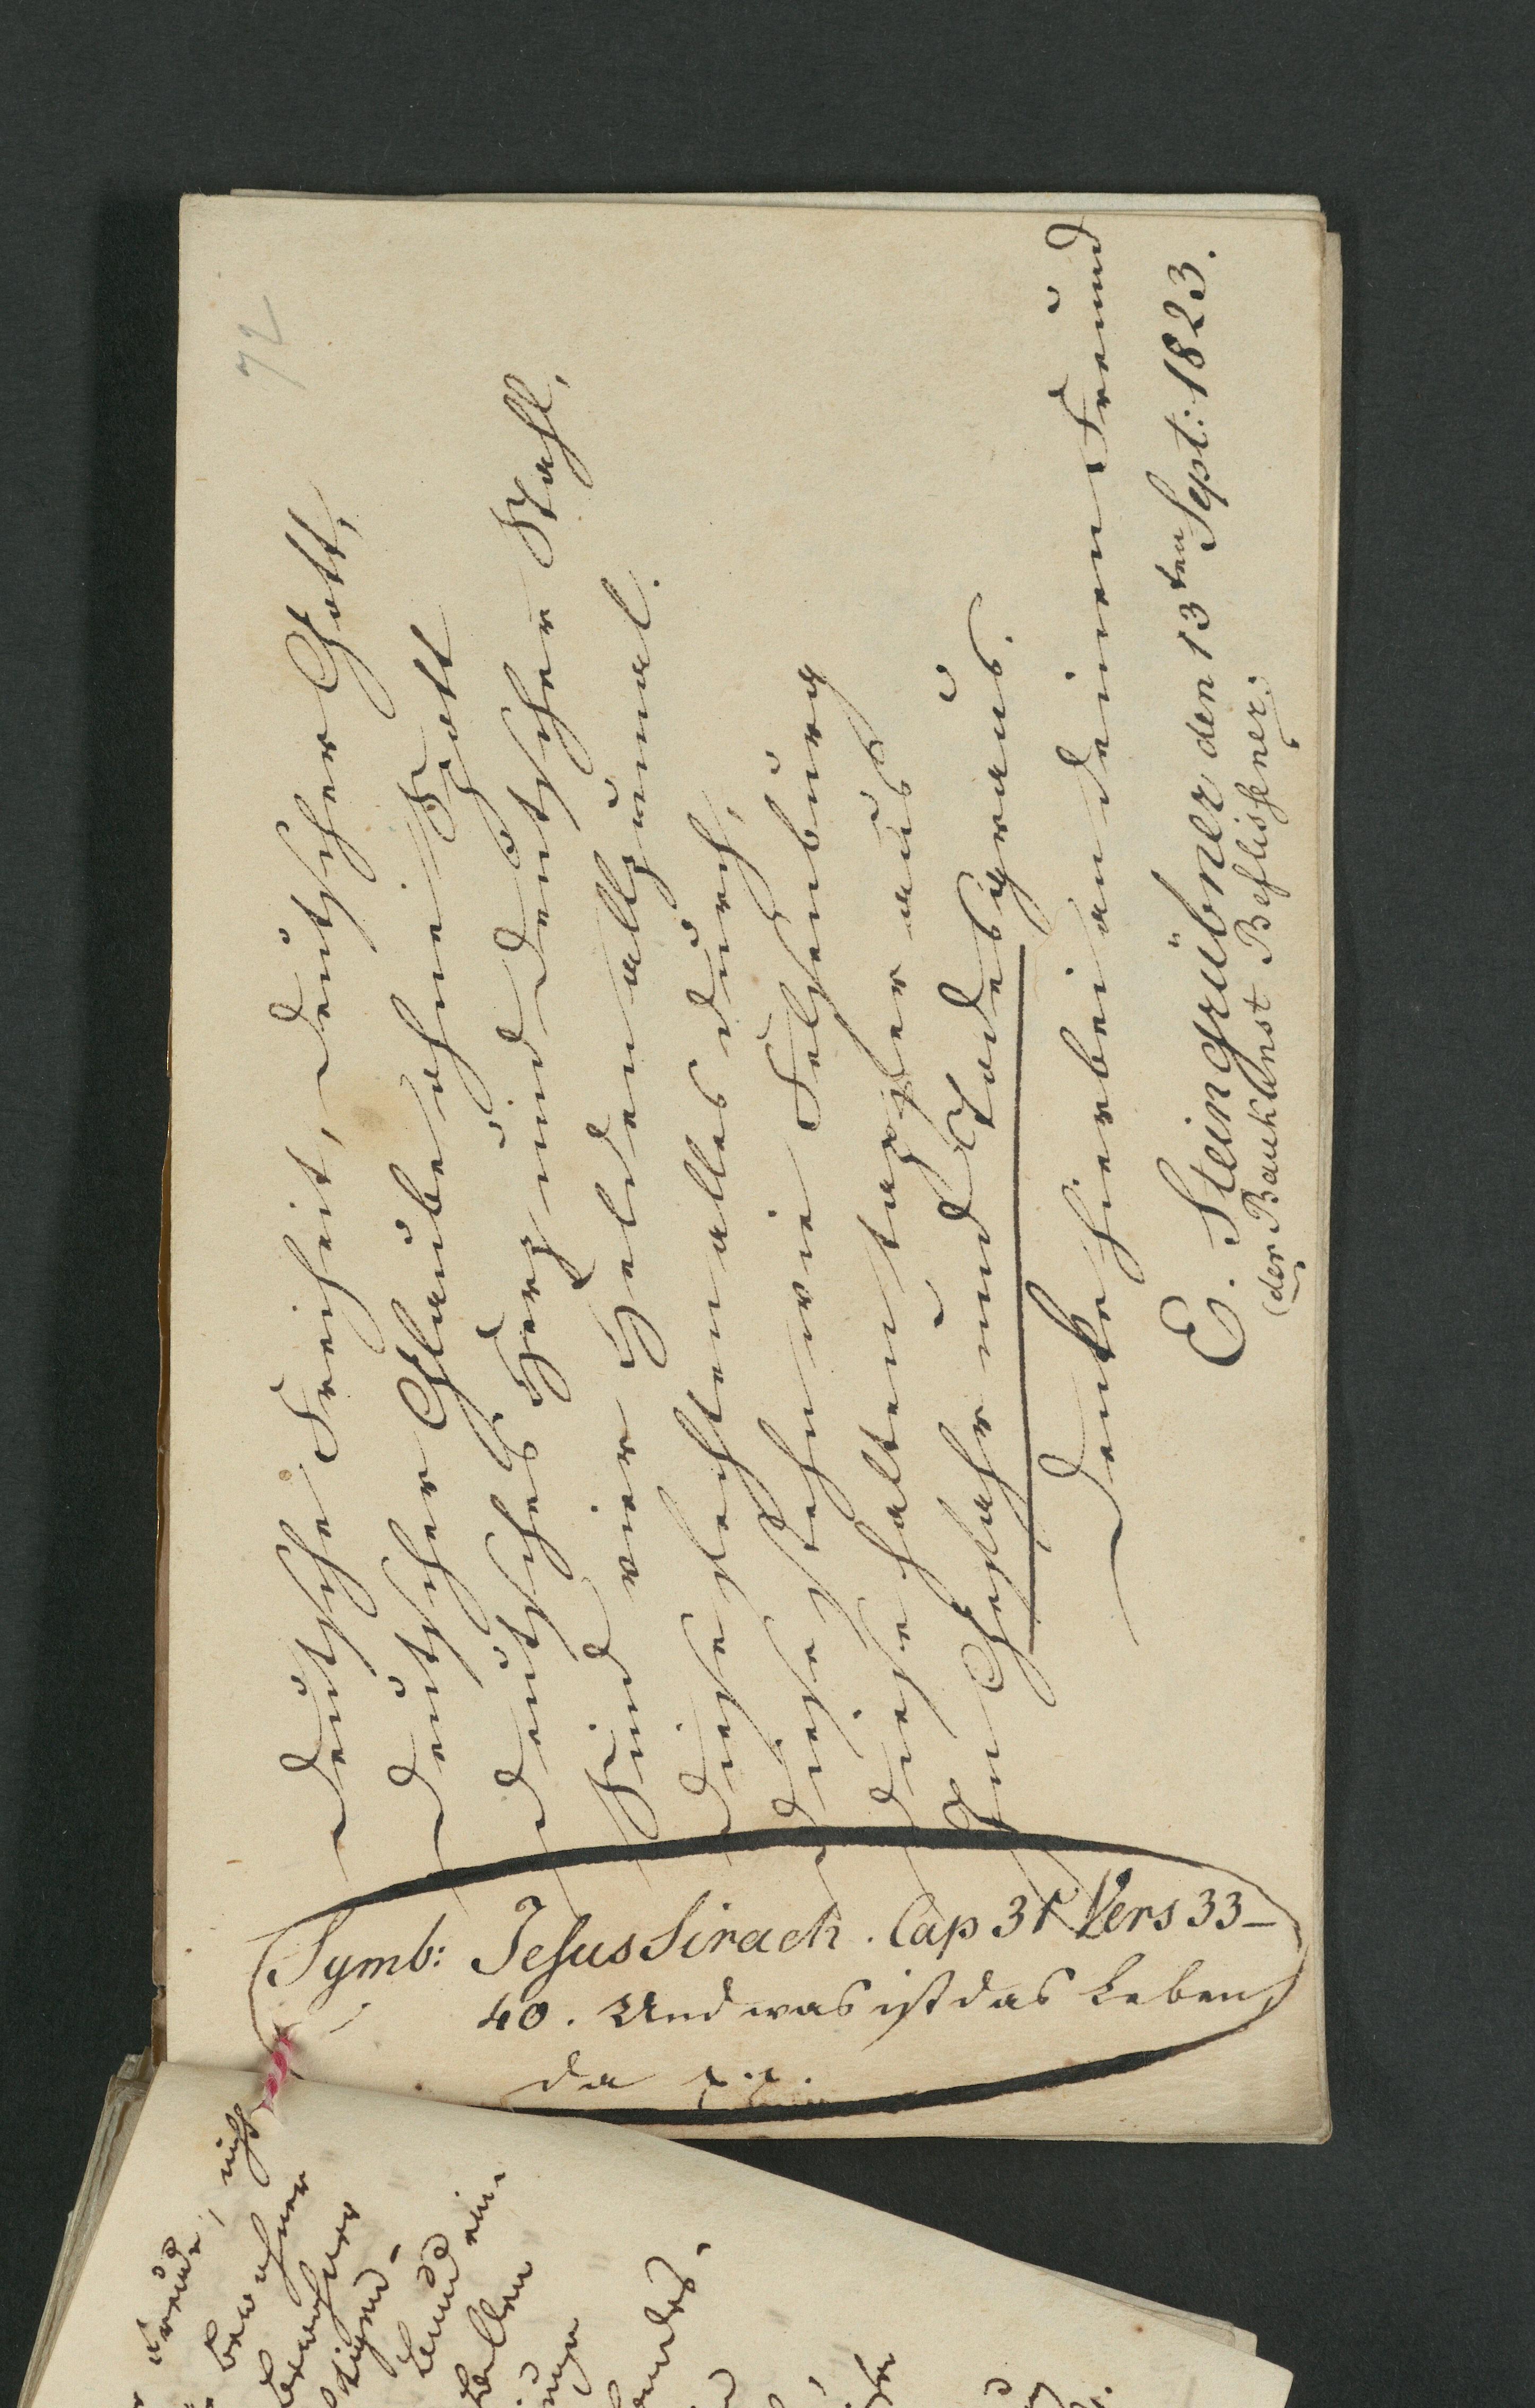 72
Deutsche Freiheit, deutscher Gott,
deutscher Glaube ohne Spott
deutsches Herz und deutscher Stahl,
Sind vier Helden allzumal.
diese fechten alles durch,
diese stehn wie Felsenburg
diese halten tapfer aus
In Gefahr und Todesgraus.
Denke hierbei an deinen Freund
E. Steingrübner den 13ten Sept: 1823.
(der Baukunst Beflissner.
Symb: Jesus Sirach. Cap 31 Vers 33-
40. Und was ist das Leben,
da
nicht